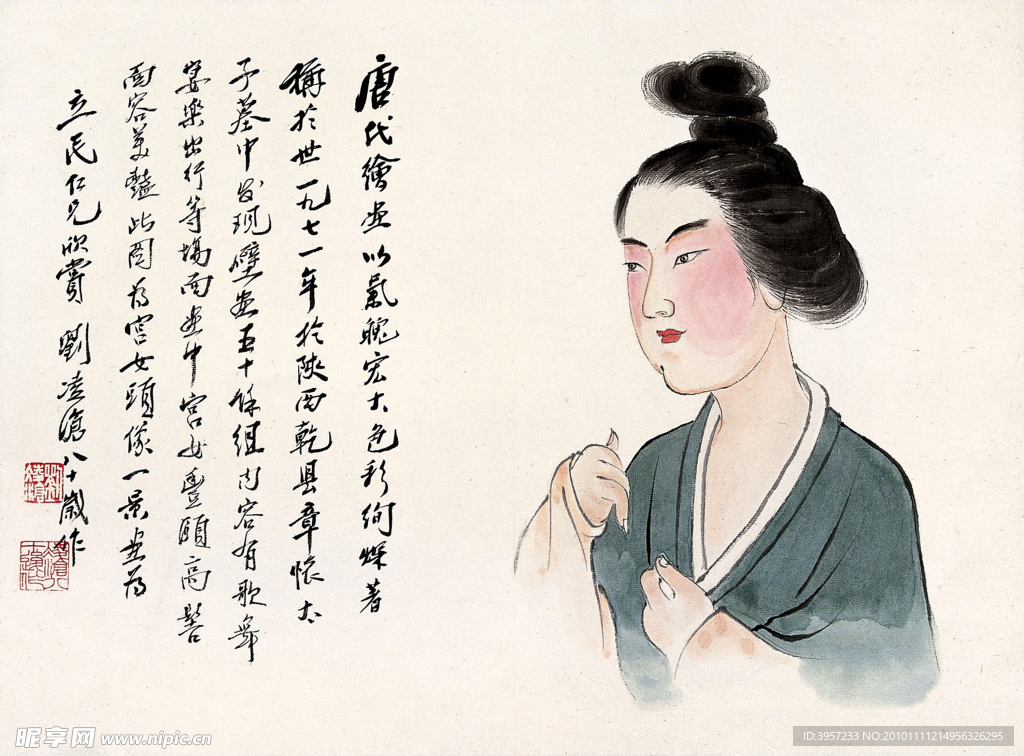 唐代繪画以氣魄宏大色彩绚燦著
稱於世一九七一年於陝西乾县章懷太
子墓中发现壁画五十餘组内容有歌舞
宴樂出行等場面画中宫女豐頤高髻
面容美豔此图为宫女頭像一景画为
立民仁兄欣賞 劉凌滄八十歲作
昵享网 www.nipic.cn
ID:3957233 NO:20101111214956326295